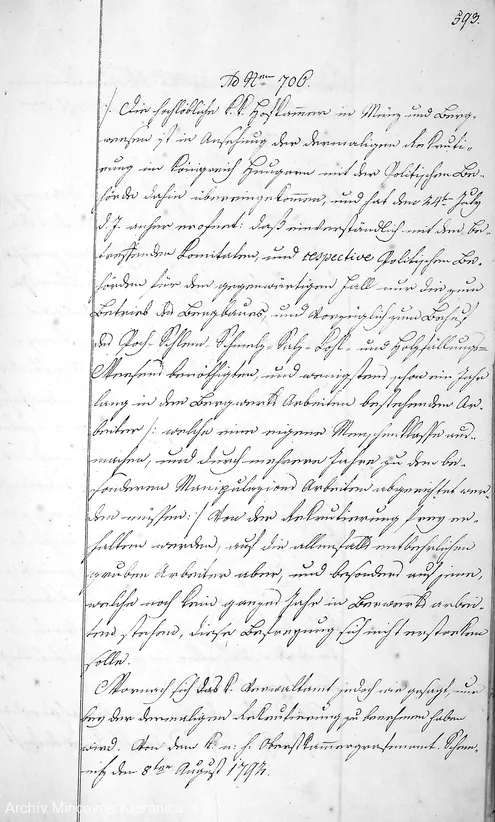 393.
Ad Nrum 706.
/: Die hochlöbliche k. k. Hofkammer in Münz- und Berg-
weesen ist in Ansehung der dermaligen Rekruti-
rung im Königreich Hungarn mit der Politischen Be-
hörde dahin übereingekommen, und hat den 24ten July
d. J. anher erofnet: daß einverständlich mit den be-
treffenden Komitaten, und respective Politischen Be-
hörden für den gegenwärtigen Fall nur die zum
Betrieb des Bergbaues, und vorzüglich zum Behuf
des Poch- Schlem- Schmelz- Salz- Kohl- und Holzfällungs-
Weesens benöthigten, und wenigstens schon ein Jahr
lang in den Bergwerks Arbeiten bestehenden Ar-
beiter /: welche eine eigene Menschen Klasse aus-
machen, und durch mehrere Jahre zu den be-
sonderen Manipulazions Arbeiten abgerichtet wer-
den müssen: / von der Rekrutierung frey er-
halten werden, auf die allenfalls entbehrlichen
gruben Arbeiter aber, und besonders auf jene,
welche noch kein ganzes Jahr in Berwerks arbei-
ten stehen, diese Befreyung sich nicht erstrecken
solle.
Wornach sich das k. Verwaltamt jedoch wie gesagt, nur
bey der dermaligen Rekrutierung zu benehmen haben
wird. Von dem K. u: h. Oberstkammergrafenamt. Schem-
nitz den 8ten August 1794.
Archív Mincovne Kremnica, š.